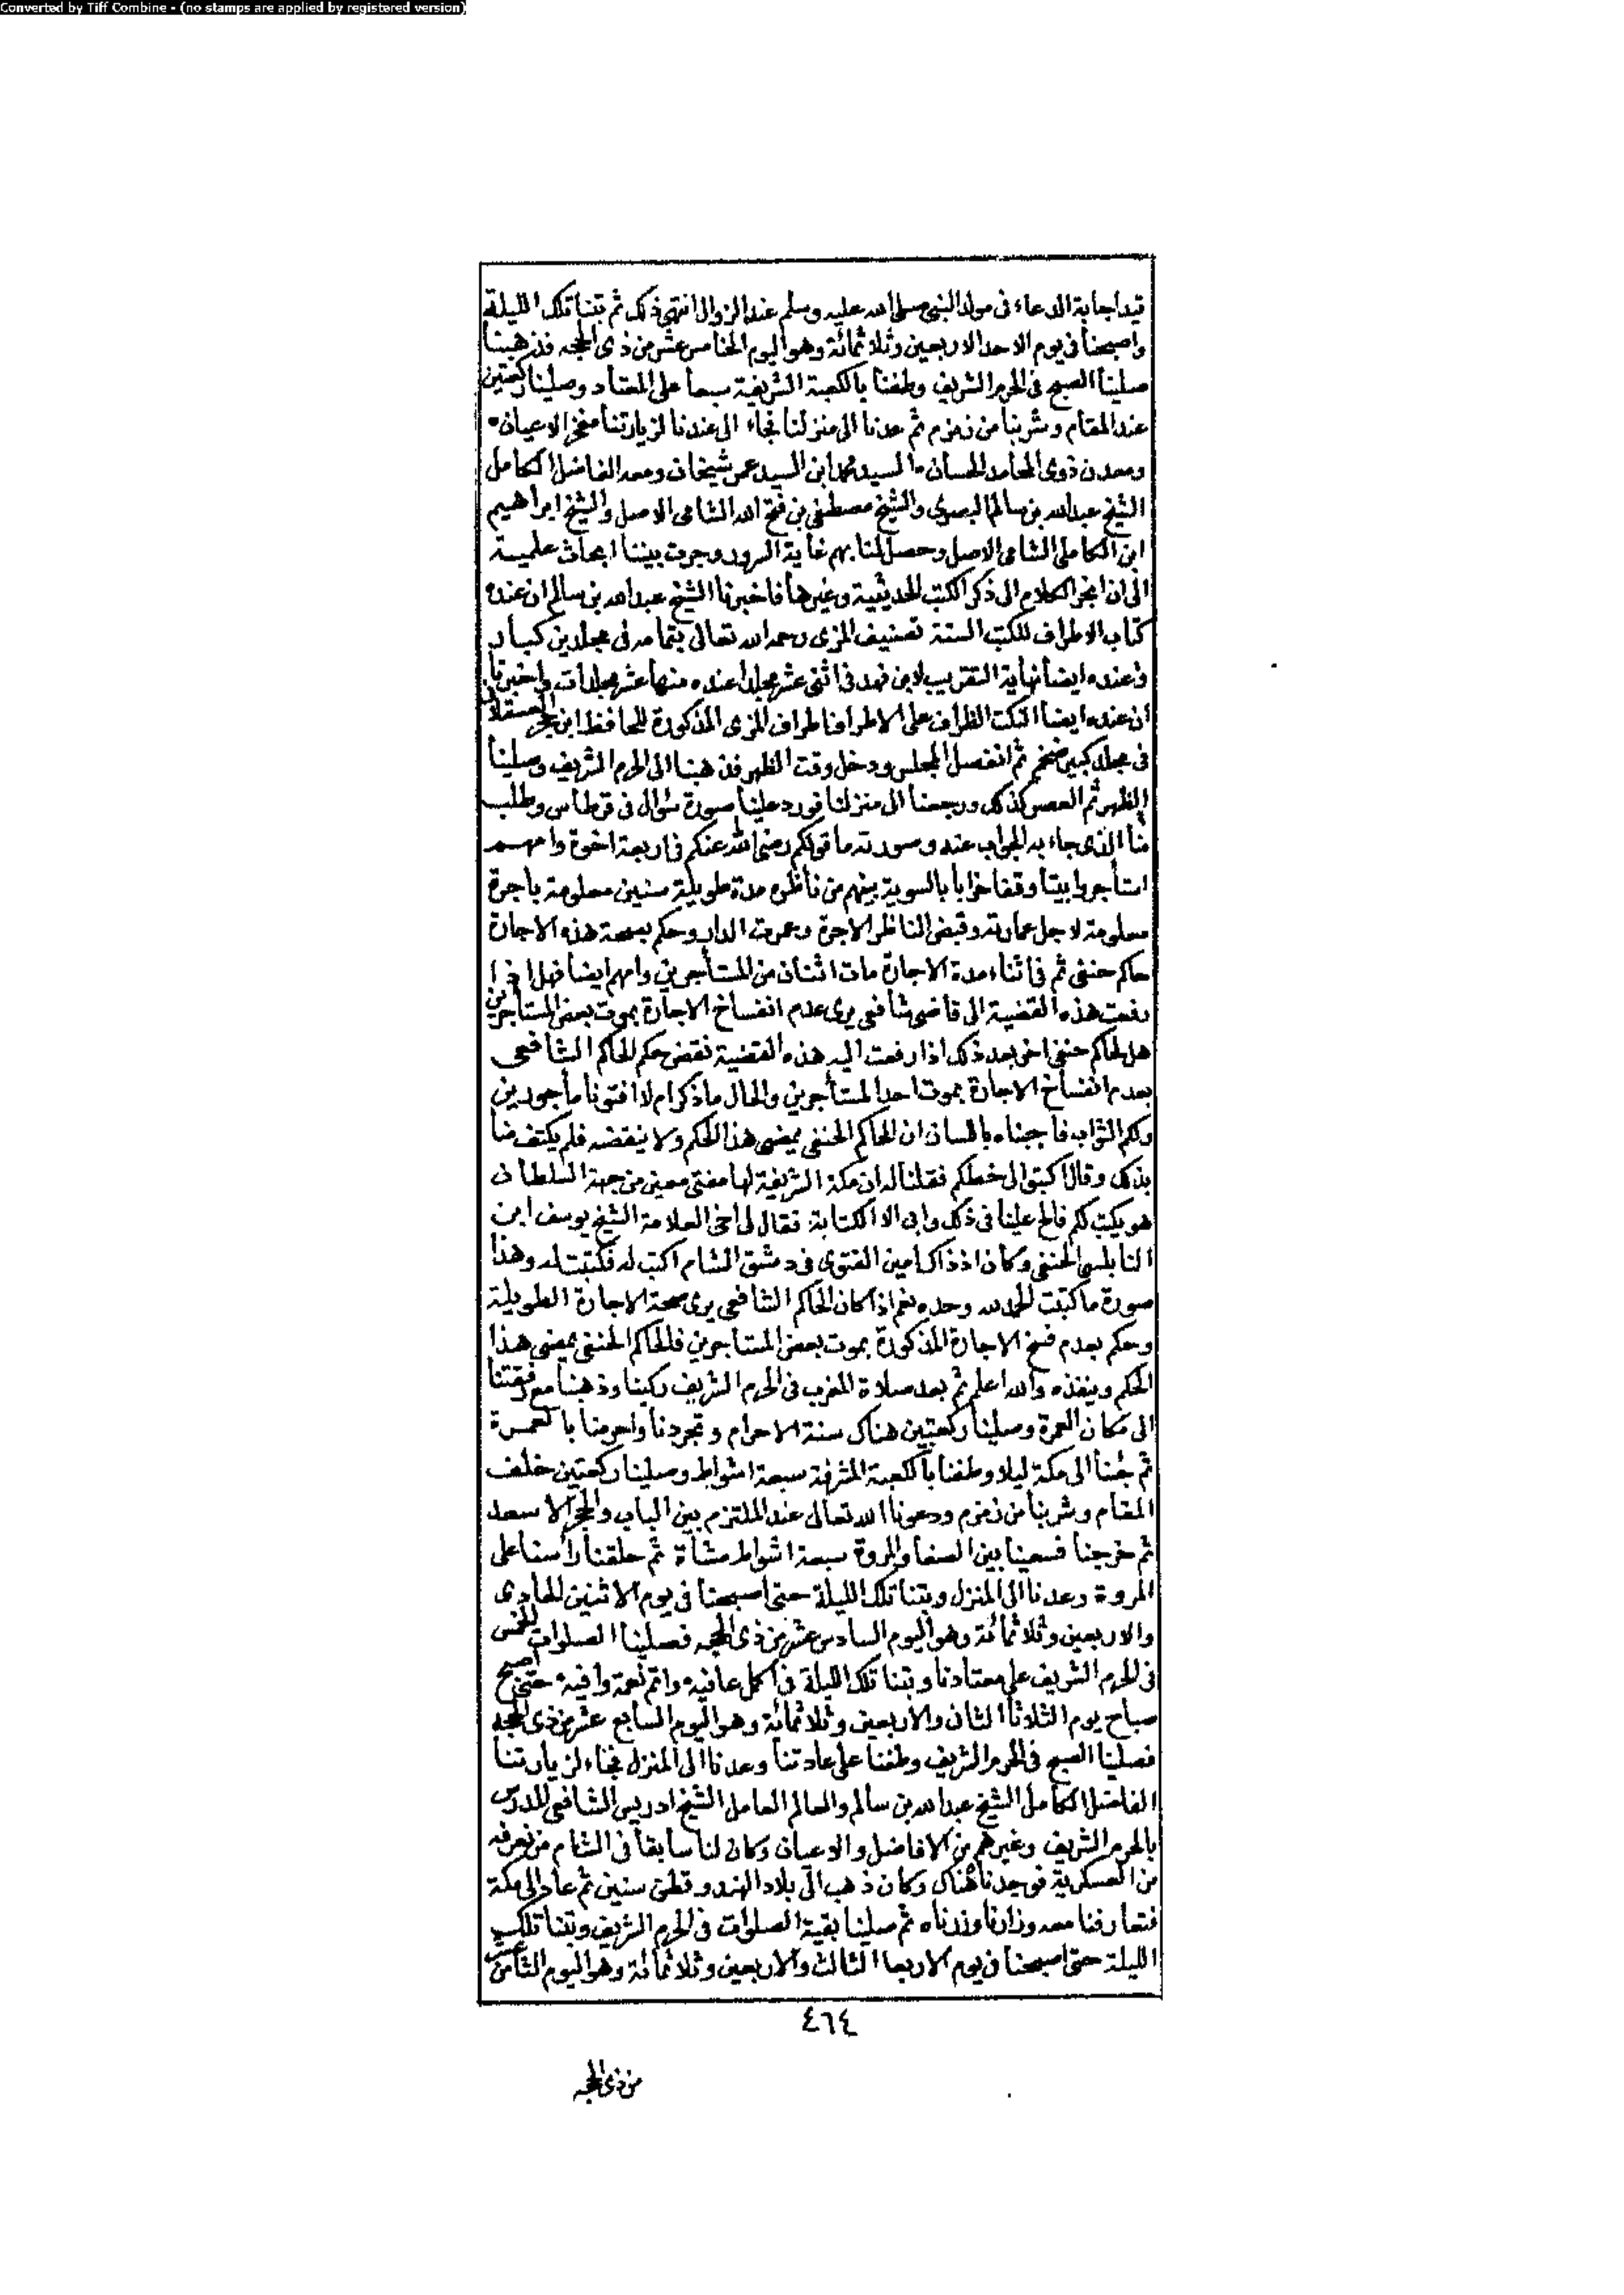 Converted by Tiff Combine - (no stamps are applied by registered version)
قيد اجابة الدعاء فى مولد النبى صلى الله عليه وسلم عند الزوال انتهى ذلك ثم بتنا تلك الليلة
واصبحنا فى يوم الاحد الاربعين وثلاثمائة وهو اليوم الخامس عشر من ذى الحجه فذهبنا
صلينا الصبح فى الحرم الشريف وطفنا بالكعبة الشريفة سبعا على المعتاد وصلينا ركعتين
عند المقام وشربنا من زمزم ثم عدنا الى منزلنا فجاء الى عندنا لزيارتنا مفخر الاعيان
ومعدن ذوى المحامد الحسان السيد محمد ابن السيد عمر شيخان ومعه الفاضل الكامل
الشيخ عبدالله بن سالم البصرى والشيخ مصطفى بن فتح الله الشامى الاصل والشيخ ابراهيم
ابن الكاملى الشامى الاصل وحصل لنا بهم غاية السرور وجرت بيننا ابحاث علمية
الى ان انجر الكلام الى ذكر الكتب الحديثية وغيرها فاخبرنا الشيخ عبدالله بن سالم ان عنده
كتاب الاطراف للكتب الستة تصنيف المزى رحمه الله تعالى بتمامه فى مجلدين كبار
وعنده ايضا نهاية التقريب لابن فهد فى اثنى عشر مجلدا عنده منها عشر مجلدات واخبرنا
ان عنده ايضا النكت الظراف على الاطراف اطراف المزى المذكورة للحافظ ابن حجر العسقلانى
فى مجلد كبير ضخم ثم انفصل المجلس ودخل وقت الظهر فذهبنا الى الحرم الشريف وصلينا
الظهر ثم العصر كذلك ورجعنا الى منزلنا فورد علينا صورة سؤال فى قرطاس وطلب
منا الذى جاء به الجواب عنه وصورته ما قولكم رضى الله عنكم فى اربعة اخوة وامهم
استأجروا بيتا وقفا خرابا بالسوية بينهم من ناظره مدة طويلة سنين معلومة باجرة
معلومة لاجل عمارته وقبض الناظر الاجرة وعمرت الدار وحكم بصحة هذه الاجارة
حاكم حنفى ثم فى اثناء مدة الاجارة مات اثنان من المستأجرين وامهم ايضا فهل اذا
رفعت هذه القضية الى قاضى شافعى يرى عدم انفساخ الاجارة بموت بعض المستأجرين
هل لحاكم حنفى اخر بعد ذلك اذا رفعت اليه هذه القضية نقض حكم الحاكم الشافعى
بعدم انفساخ الاجارة بموت احد المستأجرين والحال ما ذكر ام لا افتونا مأجورين
ولكم الثواب فأجبناه باللسان ان الحاكم الحنفى يمضى هذا الحكم ولا ينقضه فلم يكتف منا
بذلك وقال اكتبوا لى خطكم فقلنا له ان مكة الشريفة لها مفتى معين من جهة السلطان
هو يكتب لكم فالح علينا فى ذلك وابى الا الكتابة فقال لى اخى العلامة الشيخ يوسف ابن
النابلسى الحنفى وكان اذ ذاك امين الفتوى فى دمشق الشام اكتب له فكتبت له وهذا
صورة ما كتبت الحمد لله وحده نعم اذا كان الحاكم الشافعى يرى صحة الاجارة الطويلة
وحكم بعدم فسخ الاجارة المذكورة بموت بعض المستأجرين فالحاكم الحنفى يمضى هذا
الحكم وينفذه والله اعلم ثم بعد صلاة المغرب فى الحرم الشريف ركبنا وذهبنا مع رفقتنا
الى مكان العمرة وصلينا ركعتين هناك سنة الاحرام وتجردنا واحرمنا بالعمرة
ثم جئنا الى مكة ليلا وطفنا بالكعبة المشرفة سبعة اشواط وصلينا ركعتين خلف
المقام وشربنا من زمزم ودعونا الله تعالى عند الملتزم بين الباب والحجر الاسعد
ثم خرجنا فسعينا بين الصفا والمروة سبعة اشواط مشأة ثم حلقنا رأسنا على
المروة وعدنا الى المنزل وبتنا تلك الليلة حتى اصبحنا فى يوم الاثنين الحادى
والاربعين وثلاثمائة وهو اليوم السادس عشر من ذى الحجه فصلينا الصلوات الخمس
فى الحرم الشريف على معتادنا وبتنا تلك الليلة فى اكمل عافيه واتم نعمة وافيه حتى اصبح
صباح يوم الثلاثا الثانى والاربعين وثلاثمائة وهو اليوم السابع عشر من ذى الحجه
فصلينا الصبح فى الحرم الشريف وطفنا على عادتنا وعدنا الى المنزل فجاء لزيارتنا
الفاضل الكامل الشيخ عبدالله بن سالم والعالم العامل الشيخ ادريس الشافعى المدرس
بالحرم الشريف وغيرهم من الافاضل والاعيان وكان لنا سابقا فى الشام من نعرفه
من العسكرية فوجدناه هناك وكان ذهب الى بلاد الهند وقطن سنين ثم عاد الى مكة
فتعارفنا معه وزارنا وزرناه ثم صلينا بقية الصلوات فى الحرم الشريف وبتنا تلك
الليلة حتى اصبحنا فى يوم الاربعا الثالث والاربعين وثلاثمائة وهو اليوم الثامن عشر
٤٦٤
من ذى الحجه